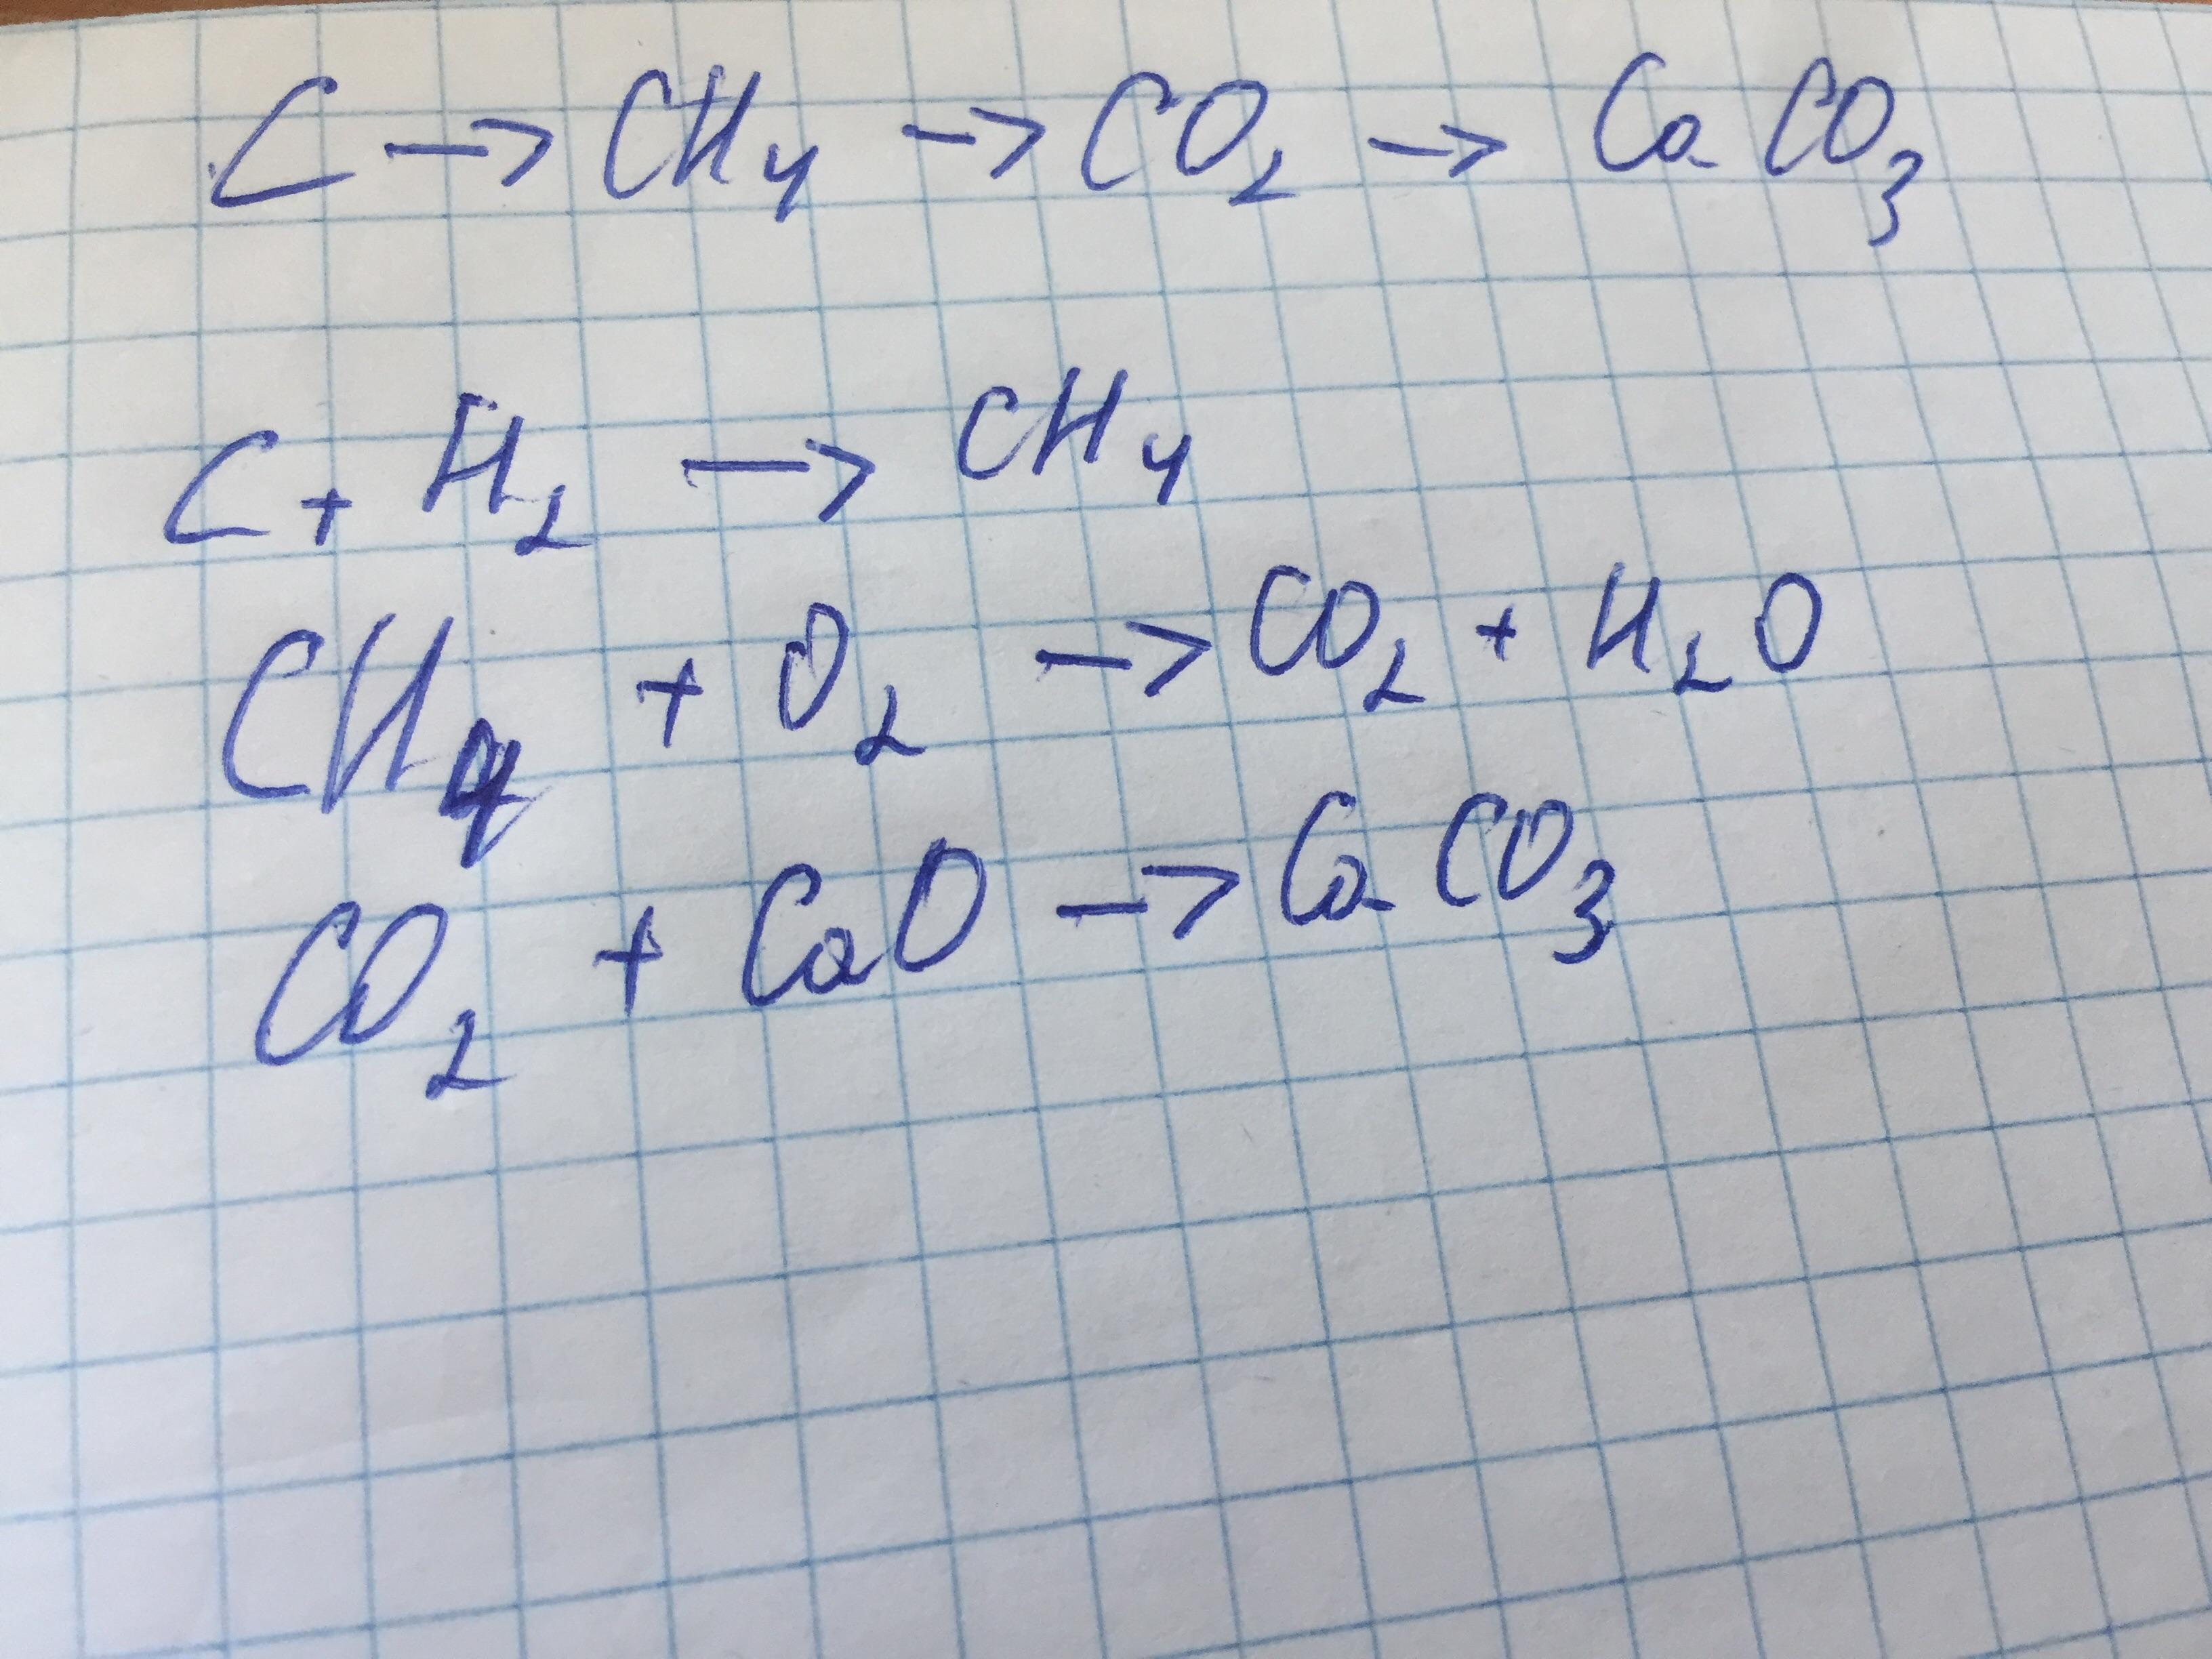 C → CH₄ → CO₂ → CaCO₃
C + H₂ → CH₄
CH₄ + O₂ → CO₂ + H₂O
CO₂ + CaO → CaCO₃